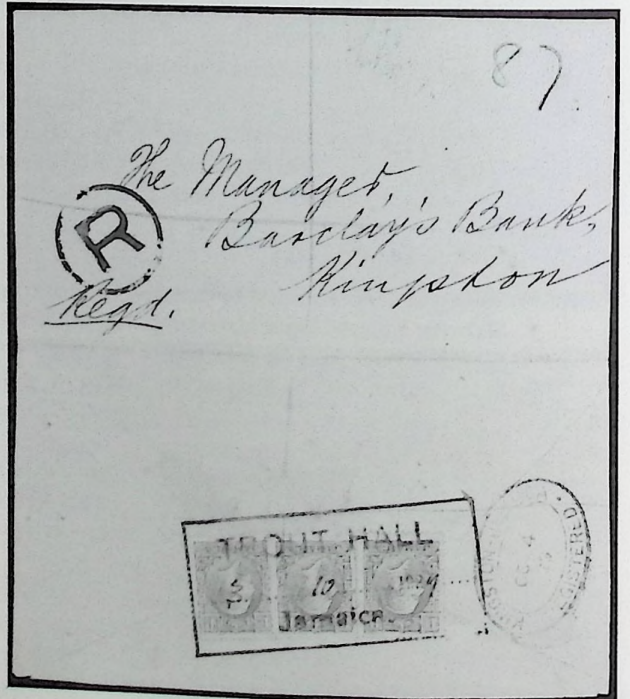 87
The Manager,
Barclay's Bank,
Kingston
R
Regd.
TROUT HALL
10
Jamaica.
REGISTERED